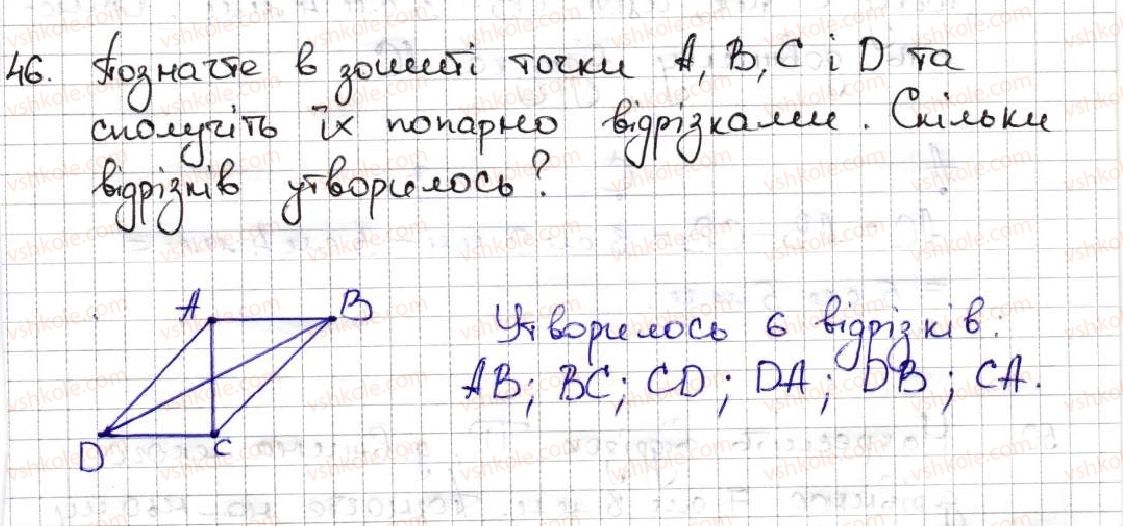 46. Позначте в зошиті точки A, B, C і D та
сполучіть їх попарно відрізками. Скільки
відрізків утворилось?
A B
Утворилось 6 відрізків:
AB; BC; CD; DA; DB; CA.
D C